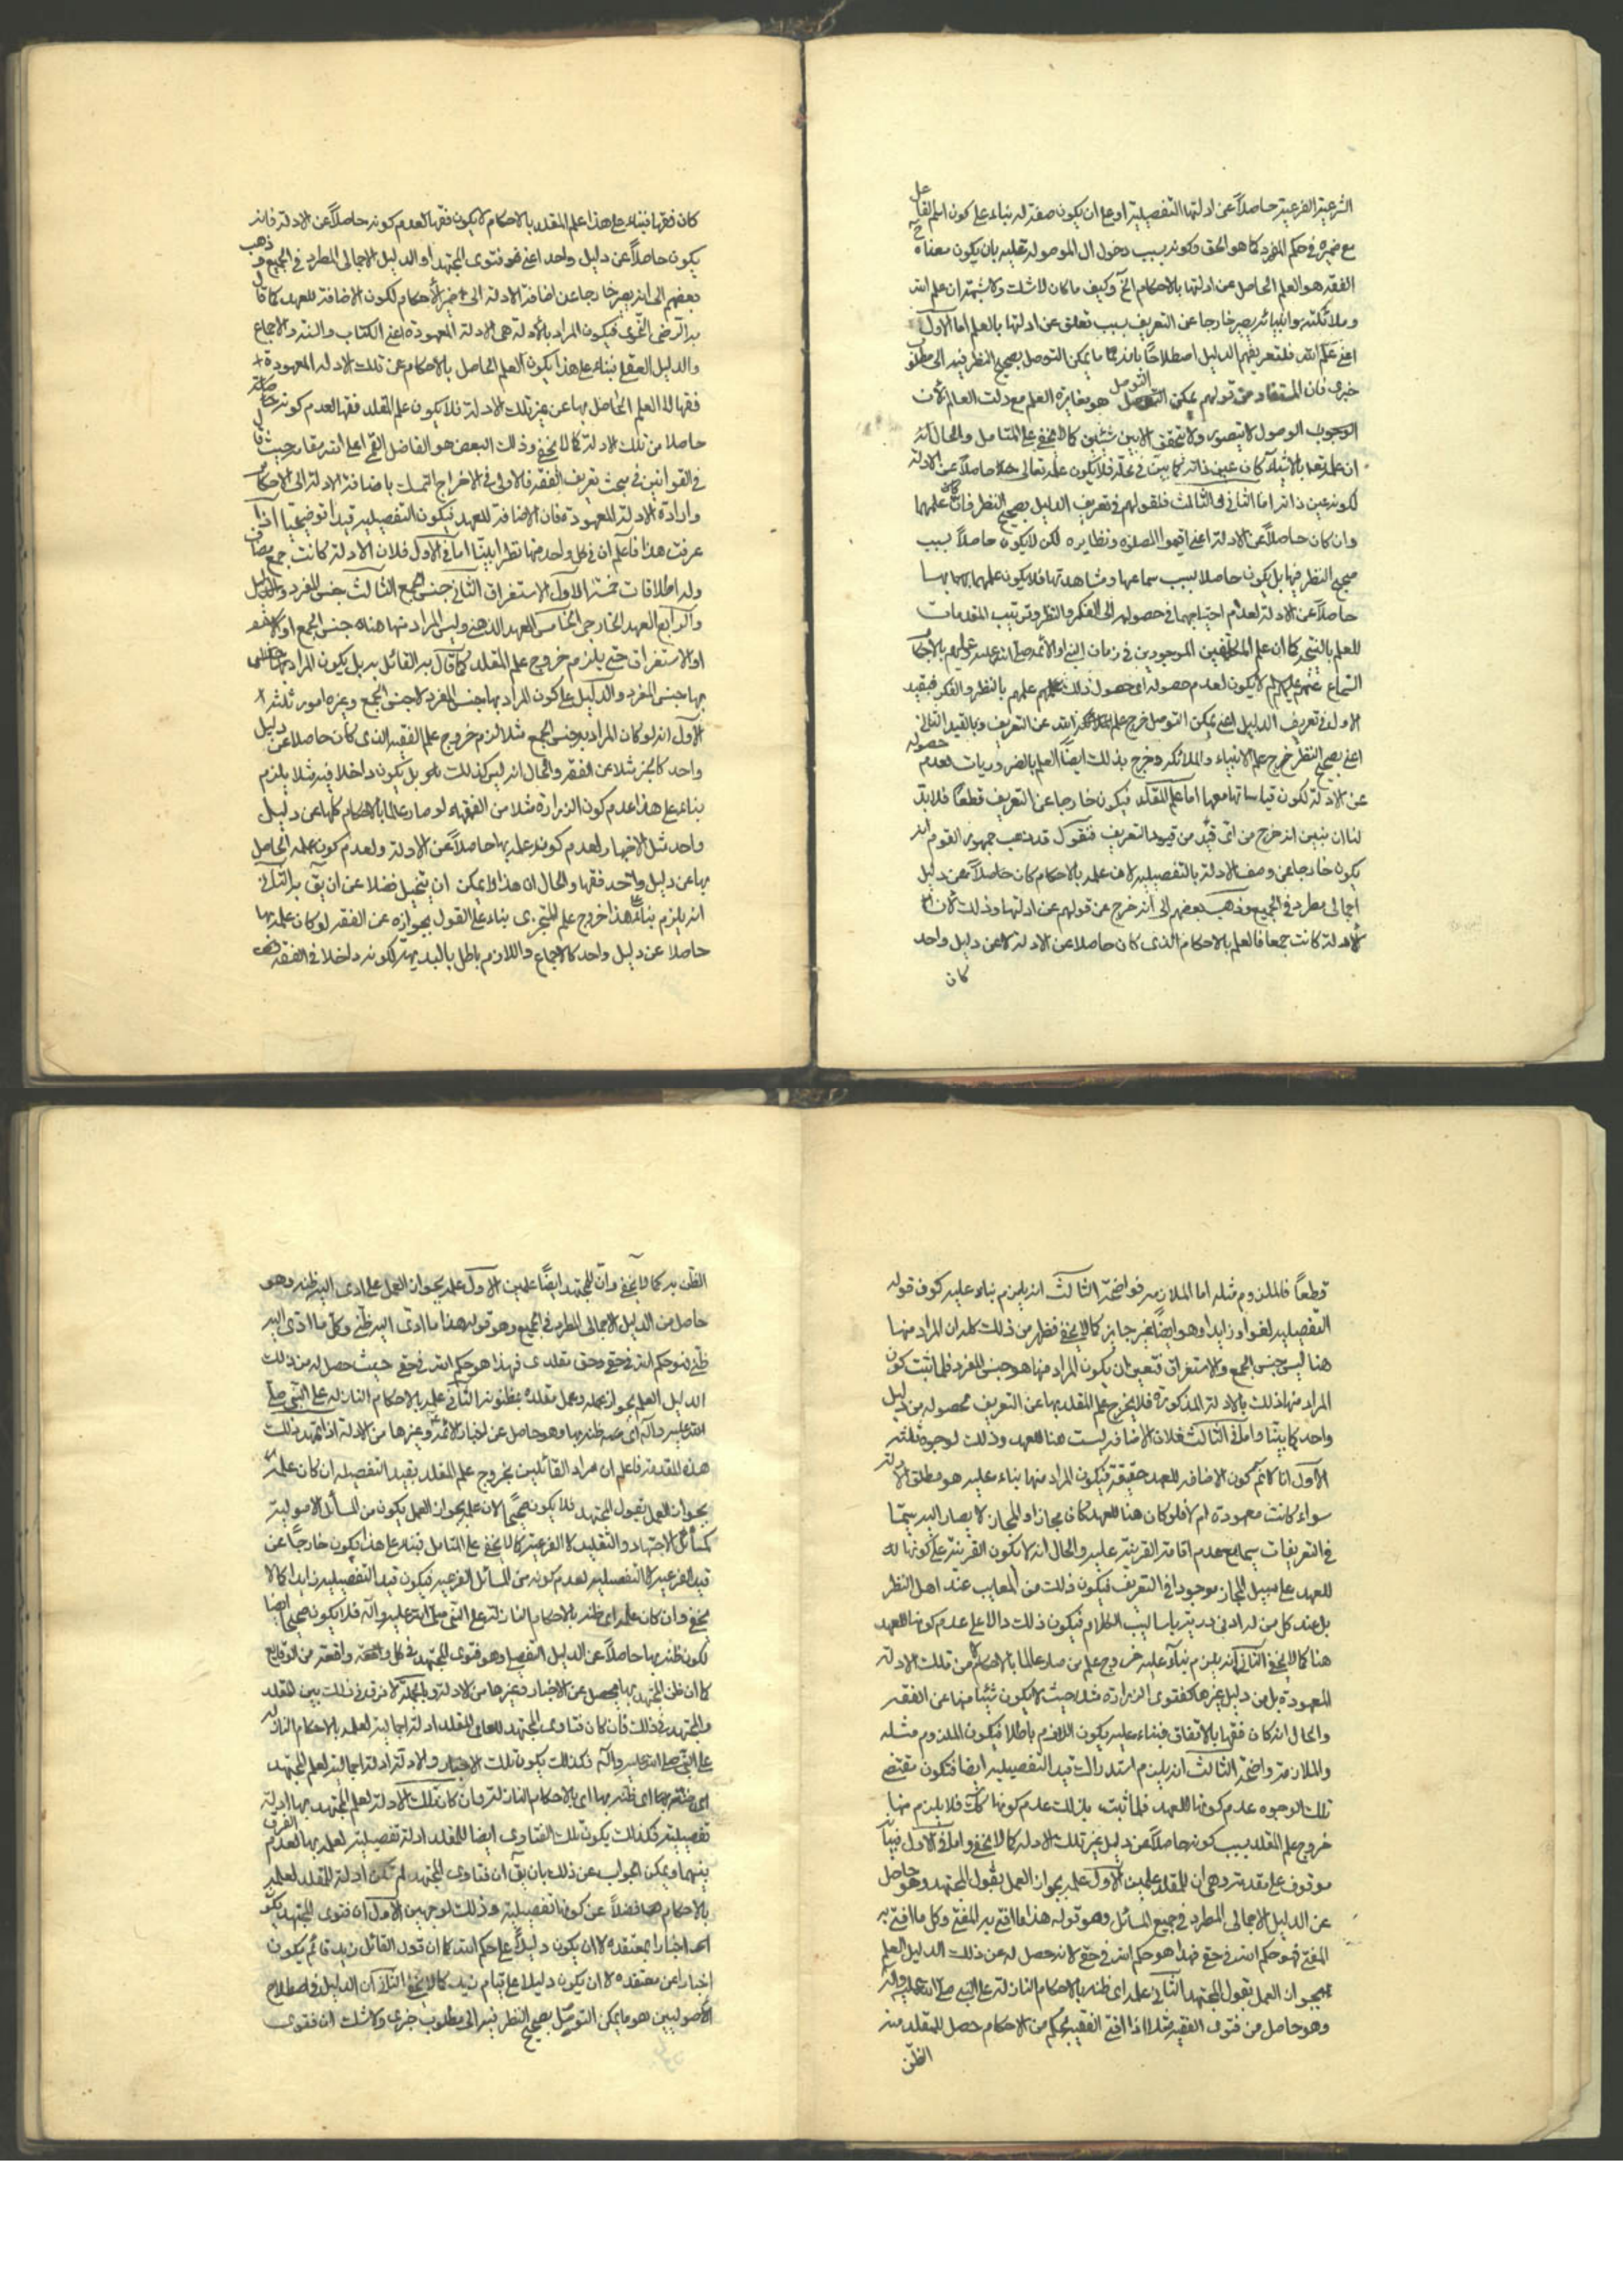 الشرعية الفرعية حاصلاً عن ادلتها التفصيلية او على ان يكون صفة له بناء على كون اسم الفاعل
مع ضميره في حكم المفرد كما هو الحق وكونه بسبب دخول ال الموصولة عليه بان يكون معناه ح
الفقه هو العلم الحاصل عن ادلتها بالاحكام الخ وكيف ما كان لا شك ولا شبهة ان علم الله
وملائكته وانبيائه يصير خارجا عن التعريف بسبب تعلق عن ادلتها بالعلم اما الاول
اعني علم الله فلتعريفهم الدليل اصطلاحا بانه ما يمكن التوصل بصحيح النظر فيه الى مطلوب
خبري فان المستفاد من قولهم يمكن التوصل هو مغايرة العلم مع ذات العالم لان
الوصول لا يتصور ولا يتحقق الا بين شيئين كما لا يخفى على المتامل والحال انه
ان علمه تعالى بالاشياء كان عين ذاته كما بين في محله فلا يكون علمه تعالى حاصلاً عن الادلة
لكونه عين ذاته اما الثاني والثالث فلقولهم في تعريف الدليل بصحيح النظر فان علمهما
وان كان حاصلاً عن الادلة اعني اقيموا الصلوة ونظايره لكن لا يكون حاصلاً بسبب
صحيح النظر فيها بل يكون حاصلا بسبب سماعها ومشاهدتها فلا يكون علمهما بها
حاصلاً عن الادلة لعدم احتياجهما في حصوله الى الفكر والنظر وترتيب المقدمات
للعلم بالنتيجة كما ان علم المكلفين الموجودين في زمان النبي او الائمة صلى الله عليه وعليهم بالاحكام
السماع عنهم عليهم لا يكون لعدم حصوله اي حصول ذلك علمهم بالنظر والفكر فبقيد
الاول في تعريف الدليل اعني يمكن التوصل خرج علم الله عن التعريف وبالقيد الثاني
اعني بصحيح النظر خرج علم الانبياء والملائكة وخرج بذلك ايضاً العلم بالضروريات لعدم حصوله
عن الادلة لكون قياساتها معها اما علم المقلد فيكون خارجا عن التعريف قطعاً فلا بد
لنا ان نبين انه خرج من اي قيد من قيود التعريف فنقول قد ذهب جمهور القوم انه
يكون خارجا عن وصف الادلة بالتفصيلية لان علمه بالاحكام كان حاصلاً عن دليل
اجمالي مطرد في الجميع وذهب بعضهم الى انه خرج عن قولهم عن ادلتها وذلك لان
الادلة كانت جمعا فالعلم بالاحكام الذي كان حاصلا عن الادلة لا عن دليل واحد
كان
كان فقها فبناء على هذا علم المقلد بالاحكام لا يكون فقها لعدم كونه حاصلاً عن الادلة فانه
يكون حاصلاً عن دليل واحد اعني هو فتوى المجتهد او الدليل الاجمالي المطرد في الجميع وذهب
بعضهم الى انه يصير خارجا عن اضافة الادلة الى ضمير الاحكام لكون الاضافة للعهد كما قال
به الرضي النحوي فيكون المراد بالادلة هي الادلة المعهودة اعني الكتاب والسنة والاجماع
والدليل العقلي فبناء على هذا يكون العلم الحاصل بالاحكام عن تلك الادلة المعهودة
فقها لا العلم الحاصل بها عن غير تلك الادلة فلا يكون علم المقلد فقها لعدم كونه
حاصلا من تلك الادلة كما لا يخفى وذلك البعض هو الفاضل القمي اعلى الله مقامه حيث قال
في القوانين في مبحث تعريف الفقه فالاولى في الاخراج التمسك باضافة الادلة الى الاحكام
وارادة الادلة المعهودة فان الاضافة للعهد فيكون التفصيلية قيدا توضيحيا اذا
عرفت هذا فاعلم ان في كل واحد منها نظرا اما في الاول فلان الادلة كانت جمع مضاف
وله اطلاقات خمسة الاول الاستغراق الثاني جنس الجمع الثالث جنس المفرد
والرابع العهد الخارجي الخامس العهد الذهني وليس المراد منها هناه جنس الجمع
او الاستغراق حتى يلزم خروج علم المقلد كما قال به القائل به بل يكون المراد
بها جنس المفرد والدليل على كون المراد بها جنس المفرد لا جنس الجمع وغيره امور ثلثة
الاول انه لو كان المراد به جنس الجمع مثلا لزم خروج علم الفقيه الذي كان حاصلا عن دليل
واحد كالخبر مثلا عن الفقه والحال انه ليس كذلك بل يكون داخلا فيه مثلا يلزم
بناء على هذا عدم كون الزرارة مثلا من الفقهاء لو صار عالما بالاحكام كلها عن دليل
واحد مثل الاخبار لعدم كونه علمه بها حاصلاً عن الادلة ولعدم كون علمه الحاصل
بها عن دليل واحد فقها والحال ان هذا لا يمكن ان يتخيل فضلا عن ان يق به الثاني
انه يلزم بناءً على هذا خروج علم المتجزي بناء على القول بجوازه عن الفقه لو كان علمه بها
حاصلا عن دليل واحد كالاجماع واللازم باطل بالبديهة لكونه داخلا في الفقه
قطعاً فالملزوم مثله اما الملازمة فواضحة الثالث انه يلزم بناء عليه كون قوله
التفصيلية لغوا وزايدا وهو ايضاً غير جايز كما لا يخفى فظهر من ذلك كله ان المراد منها
هنا ليس جنس الجمع والاستغراق فتعين ان يكون المراد منها هو جنس المفرد فلما ثبت كون
المراد منها ذلك بالادلة المذكورة فلا يخرج علم المقلد بها عن التعريف لحصوله من دليل
واحد كما بينا واما في الثالث فلان الاضافة ليست هنا للعهد وذلك لوجوه ثلثة
الاول انا لا نم كون الاضافة للعهد حقيقة فيكون المراد منها بناء عليه هو مطلق الادلة
سواء كانت معهودة ام لا فلو كان هنا للعهد كان مجازا والمجاز لا يصار اليه سيما
في التعريفات سيما مع عدم اقامة القرينة عليه والحال انه لا يكون القرينة على كونها له
للعهد على سبيل المجاز موجودا في التعريف فيكون ذلك من المعايب عند اهل النظر
بل عند كل من له ادنى دربة باساليب الكلام فيكون ذلك دالا على عدم كونها للعهد
هنا كما لا يخفى الثاني انه يلزم بناء عليه خروج علم من صار عالما بالاحكام لا من تلك الادلة
المعهودة بل من دليل غيرها كفتوى الزرارة مثلا حيث لا يكون شيئا منها عن الفقه
والحال انه كان فقها بالاتفاق فبناء عليه يكون اللازم باطلا فيكون الملزوم مثله
والملازمة واضحة الثالث انه يلزم استدراك قيد التفصيلية ايضا فتكون مقتضى
تلك الوجوه عدم كونها للعهد فلما ثبت بذلك عدم كونها كك فلا يلزم منها
خروج علم المقلد بسبب كونه حاصلاً عن دليل غير تلك الادلة كما لا يخفى واما في الاول فبيانه
موقوف على مقدمة وهي ان للمقلد علمين الاول علمه بجواز العمل بقول المجتهد وهو حاصل
عن الدليل الاجمالي المطرد في جميع المسائل وهو قوله هذا ما افتى به المفتي وكل ما افتى به
المفتي فهو حكم الله في حقي فهذا هو حكم الله في حقي لانه حصل له عن ذلك الدليل العلم
بجواز العمل بقول المجتهد الثاني علمه اي ظنه بالاحكام النازلة على النبي صلى الله عليه وآله
وهو حاصل من فتوى الفقيه مثلا اذا افتى الفقيه بحكم من الاحكام حصل للمقلد منه
الظن
الظن به كما لا يخفى وان للمجتهد ايضاً علمين الاول علمه بجواز العمل على ما ادى اليه ظنه وهو
حاصل من الدليل الاجمالي المطرد في الجميع وهو قوله هذا ما ادى اليه ظني وكل ما ادى اليه
ظني فهو حكم الله في حقي وحق مقلدي فهذا هو حكم الله في حقي حيث حصل له من ذلك
الدليل العلم بجواز عمله وعمل مقلده بمظنونه الثاني علمه بالاحكام النازلة على النبي صلى
الله عليه وآله اي ظنه بها وهو حاصل عن اخبار الائمة وغيرها من الادلة اذا تمهد ذلك
هذه المقدمة فاعلم ان مراد القائلين بخروج علم المقلد بقيد التفصيلية ان كان علمه
بجواز العمل بقول المجتهد فلا يكون صحيحا لان علمه بجواز العمل يكون من المسائل الاصولية
كمسائل الاجتهاد والتقليد لا الفرعية كما لا يخفى على المتامل فبناء على هذا يكون خارجاً عن
قيد الفرعية لا التفصيلية لعدم كونه من المسائل الفرعية فيكون قيد التفصيلية زايدا كما لا
يخفى وان كان علمه اي ظنه بالاحكام النازلة على النبي صلى الله عليه وآله فلا يكون صحيحا ايضا
لكون ظنه بها حاصلاً عن الدليل التفصيلي وهو فتوى المجتهد في كل واقعة واقعة من الوقايع
كما ان ظن المجتهد بها يحصل عن الاخبار وغيرها من الادلة وبالجملة لا فرق في ذلك بين المقلد
والمجتهد في ذلك فان كان فتاوى المجتهد للمقلد ادلة اجمالية لعلمه بالاحكام النازلة
على النبي صلى الله عليه وآله فكذلك يكون تلك الاخبار والادلة ادلة اجمالية لعلم المجتهد
اي ظنه بها اي بالاحكام النازلة وان كان تلك الادلة لعلم المجتهد بها ادلة
تفصيلية فكذلك يكون تلك الفتاوى ايضا للمقلد ادلة تفصيلية لعلمه بها لعدم الفرق
بينهما ويمكن الجواب عن ذلك بان يق ان فتاوى المجتهد لم تكن ادلة للمقلد لعلمه
بالاحكام فضلاً عن كونها تفصيلية وذلك لوجهين الاول ان فتوى المجتهد يكون
اخبارا بمعتقده لا ان يكون دليلاً على حكم الله كما ان قول القائل زيد قائم يكون
اخبارا عن معتقده لا ان يكون دليلا على قيام زيد كما لا يخفى الثاني ان الدليل في اصطلاح
الاصوليين هو ما يمكن التوصل بصحيح النظر فيه الى مطلوب خبري ولا شك ان فتوى